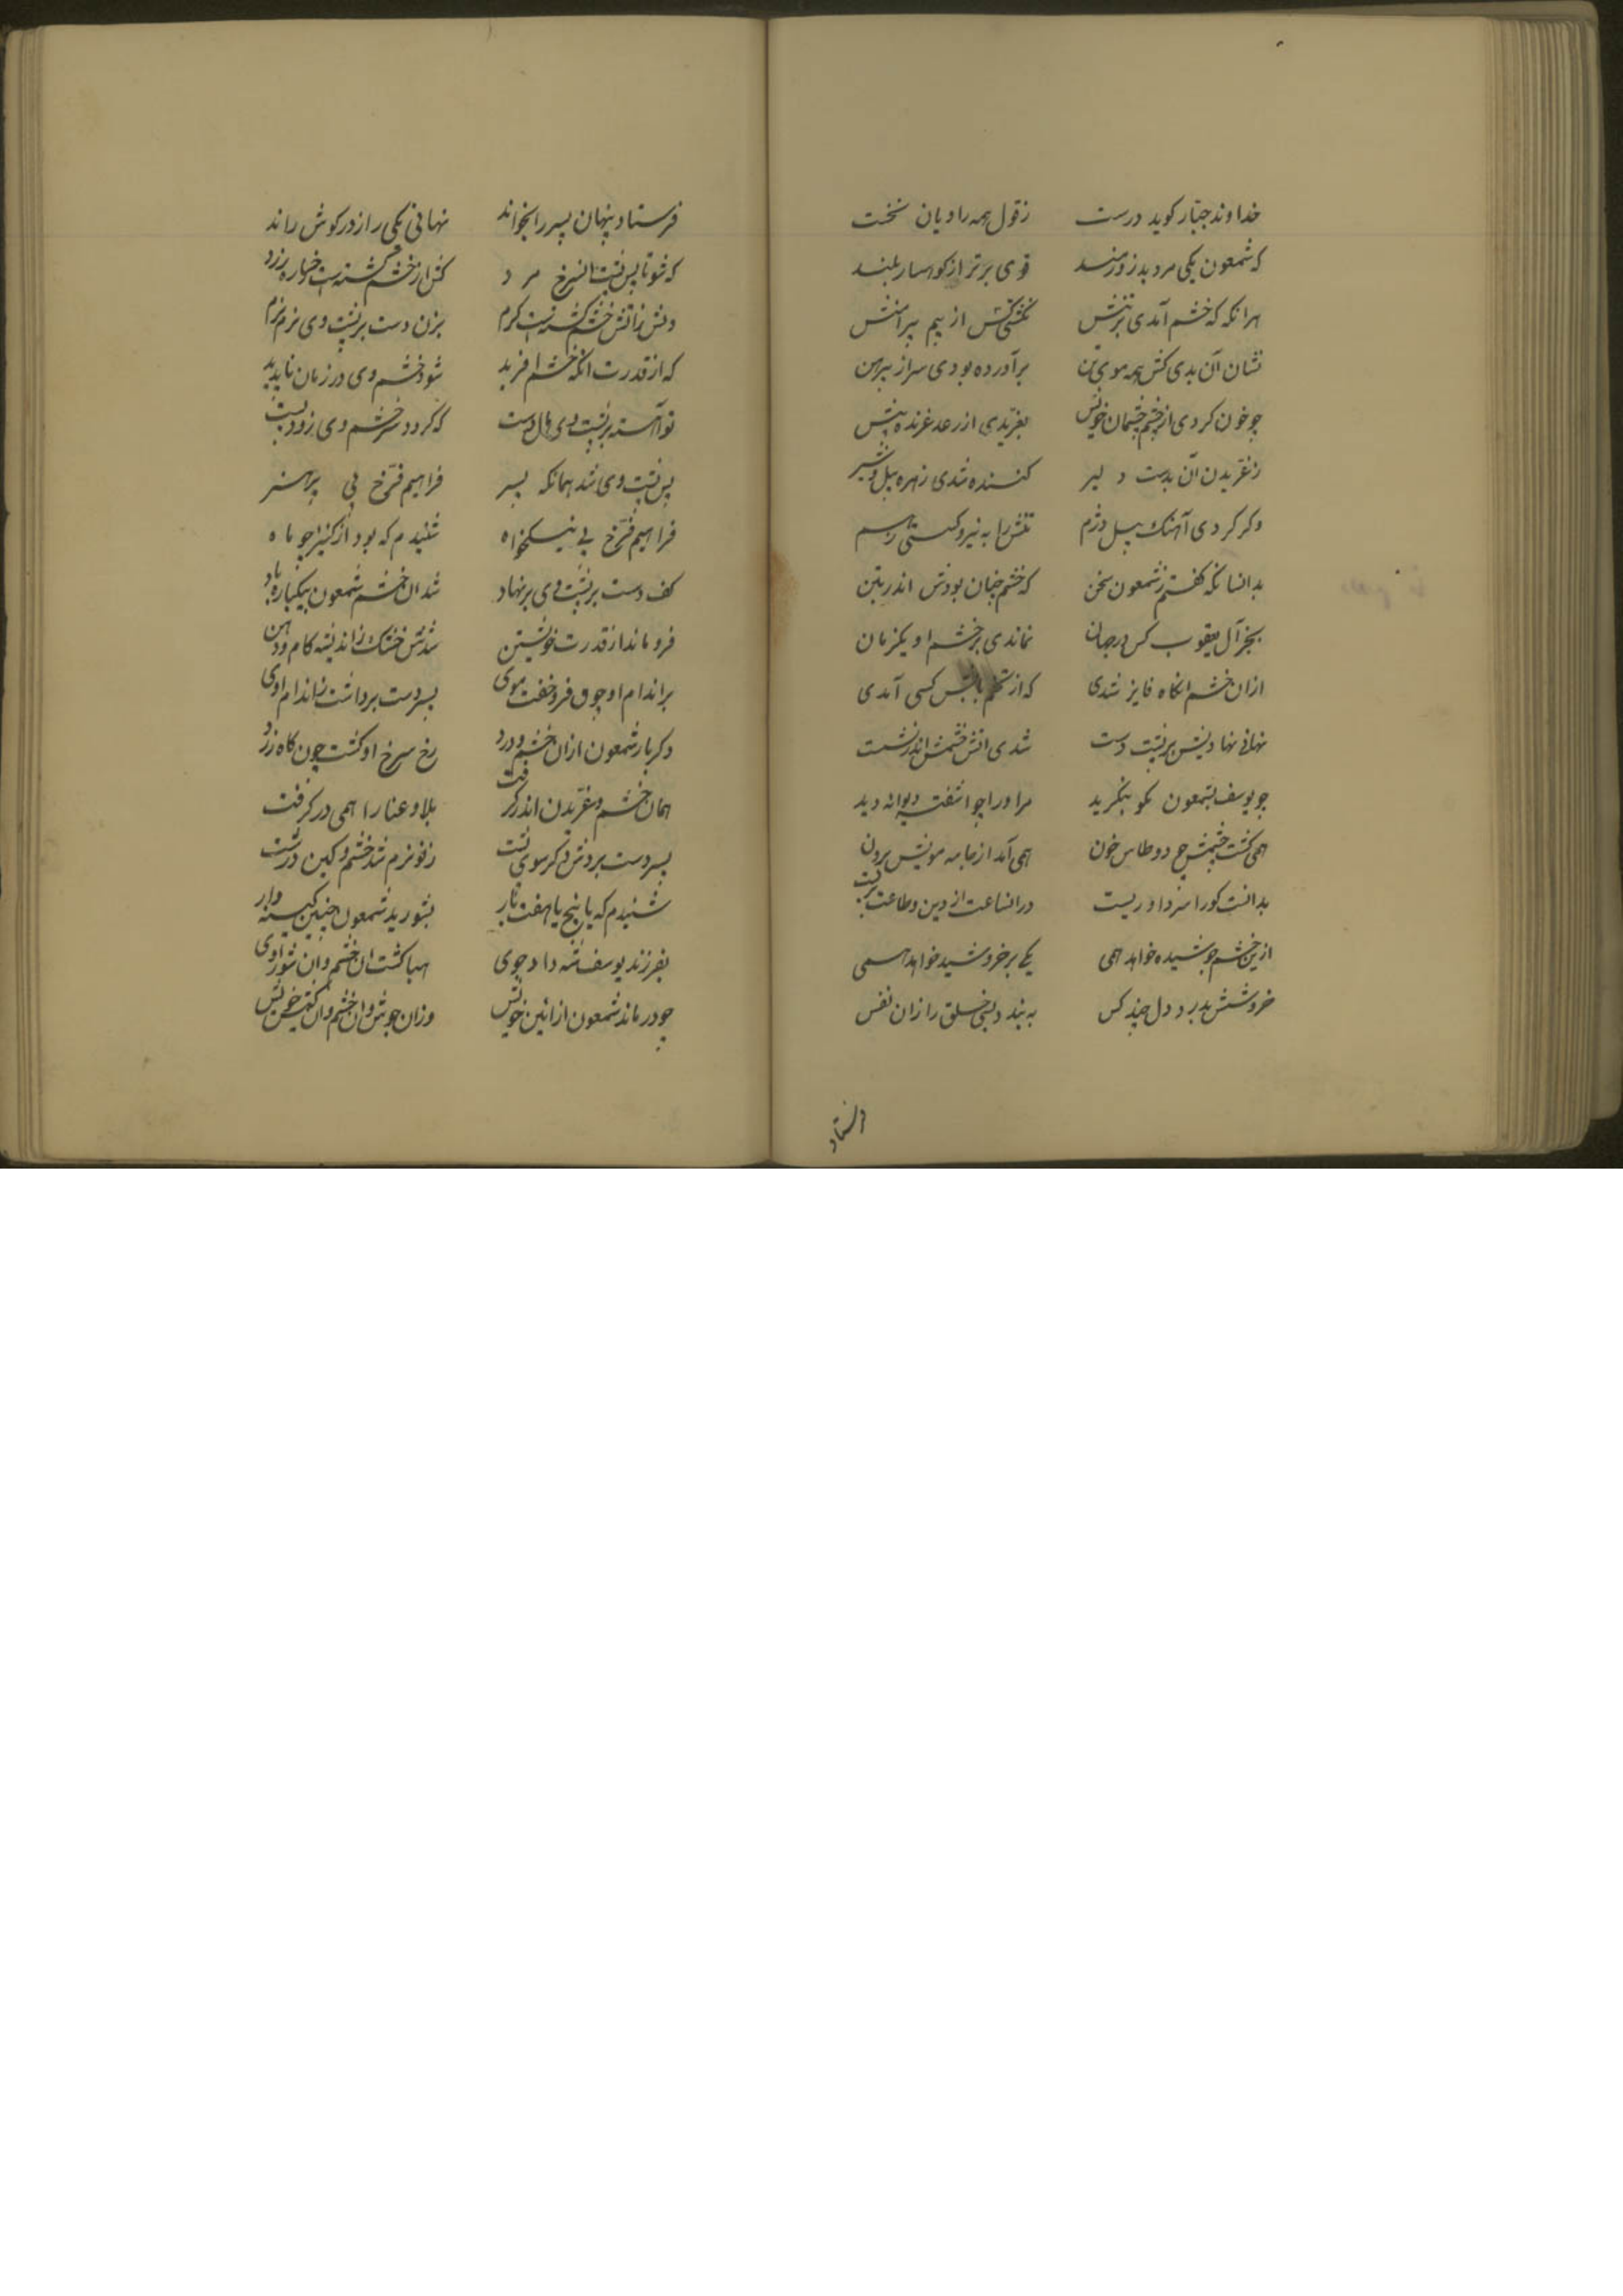 خداوند جبّار کوید درست زقول همه رادیان نخست
که شمعون یکی مرد بد زورمند قوی برتر از کوهسار بلند
هرانکه که خشم آمدی برتنش نکشتی کس از بیم پیرامنش
نشان آن بدی کش همه موی تن برآورده بودی سر از پیرهن
چو خون کردی از خشم چشمان خویش بغرّیدی از رعد غرنده بیش
زغرّیدن آن بدست دلیر کننده شدی زهره پیل و شیر
وکر کردی آهنک پیل دژم تنش را به نیرو
بدانسانکه کفتم زشمعون سخن که خشم چنان بودش اندر بتن
بجز آل یعقوب کس در جهان نماندی بر خشم او یکزمان
ازان خشم انکاه فایز شدی که از تخم یابس کسی آمدی
نهانی نهادیش بر پشت دست شدی اتش خشمش اندر نشست
چو یوسف بشمعون نکو بنکرید مر اورا چو اشفته دیوانه دید
همی کشت چشمش چو دو طاس خون همی آمد از جامه مویش برون
بدانست کورا سر داوریست درانساعت از دین و طاعت بریست
ازین خشم جوشیده خواهد همی یکی بر خروشید خواهد همی
خروشش بدرد دل چند کس به بیند بسی خلق را زان نفس
فرستاد
فرستاد پنهان پسر را بخواند نهانی یکی راز در کوش راند
که شو تا پس پشت ان سرخ مرد کش از خشم کشتست رخساره زرد
دلش زاتش خشم کشتست کرم بزن دست بر پشت وی نرم نرم
که از قدرت انکه خشم افرید شود خشم وی در زمان ناپدید
تو آهسته بر پشت وی مال دست که کردد سر خشم وی زود پست
پس پشت وی شد همانکه پسر فراهیم فرّخ پی پرهنر
فراهیم فرّخ پی نیکخواه شنیدم که بود از کنیز چو ماه
کف دست بر پشت وی بر نهاد شد ان خشم شمعون بیکباره باد
فرو ماند از قدرت خویشتن شدش خشک زاندیشه کام و دهن
بر اندام او چون فرو خفت موی پسر دست برداشت زاندام اوی
دکر بار شمعون ازان خشم و درد رخ سرخ او کشت چون کاه زرد
همان خشم و غرّیدن اندر کرفت بلا و عنا را همی در کرفت
پسر دست بردش دکر سوی پشت زنو نرم شد خشم و کین درشت
شنیدم که یا پنج یا هفت بار بشورید شمعون چنین کینه وار
بفرزند یوسف شه داد جوی هبا کشت ان خشم و ان شور اوی
چو درماند شمعون از ائین خویش وزان جوش و ان خشم و ان کفتن خویش